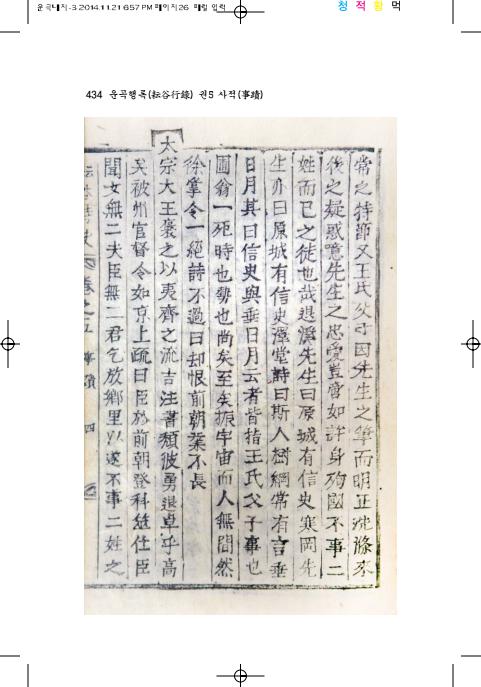 운곡내지-3 2014.11.21 6:57 PM 페이지26 매월 입력
청 적 황 먹
434 운곡행록(耘谷行錄) 권5 사적(事蹟)
常之特節又王氏父子因先生之筆而明正洗滌來
後之疑惑噫先生之忠愛豈啻如許身殉國不事二
姓而已之徒也哉退溪先生曰原城有信史寒岡先
生亦曰原城有信史澤堂詩曰斯人樹綱常有言垂
日月其曰信史與垂日月云者皆指王氏父子事也
圃翁一死時也勢也尚矣至矣振宇宙而人無間然
徐掌令一絕詩不過曰却恨前朝業不長
太宗大王褒之以夷齊之流吉注書頹波勇退卓乎高
矣被州官督令如京上疏曰臣於前朝登科筮仕臣
聞女無二夫臣無二君乞放鄉里以遂不事二姓之
卷之五 事蹟 四